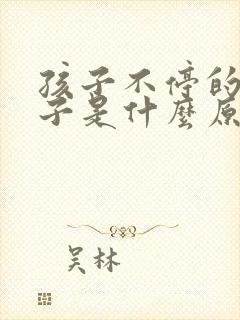 孩子不停的
子是什麼原
吴林